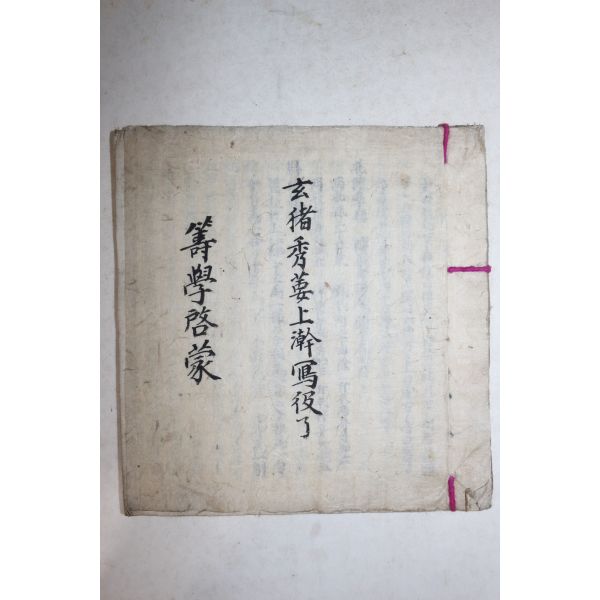 玄猪秀葽上澣寫役了
籌學啓蒙